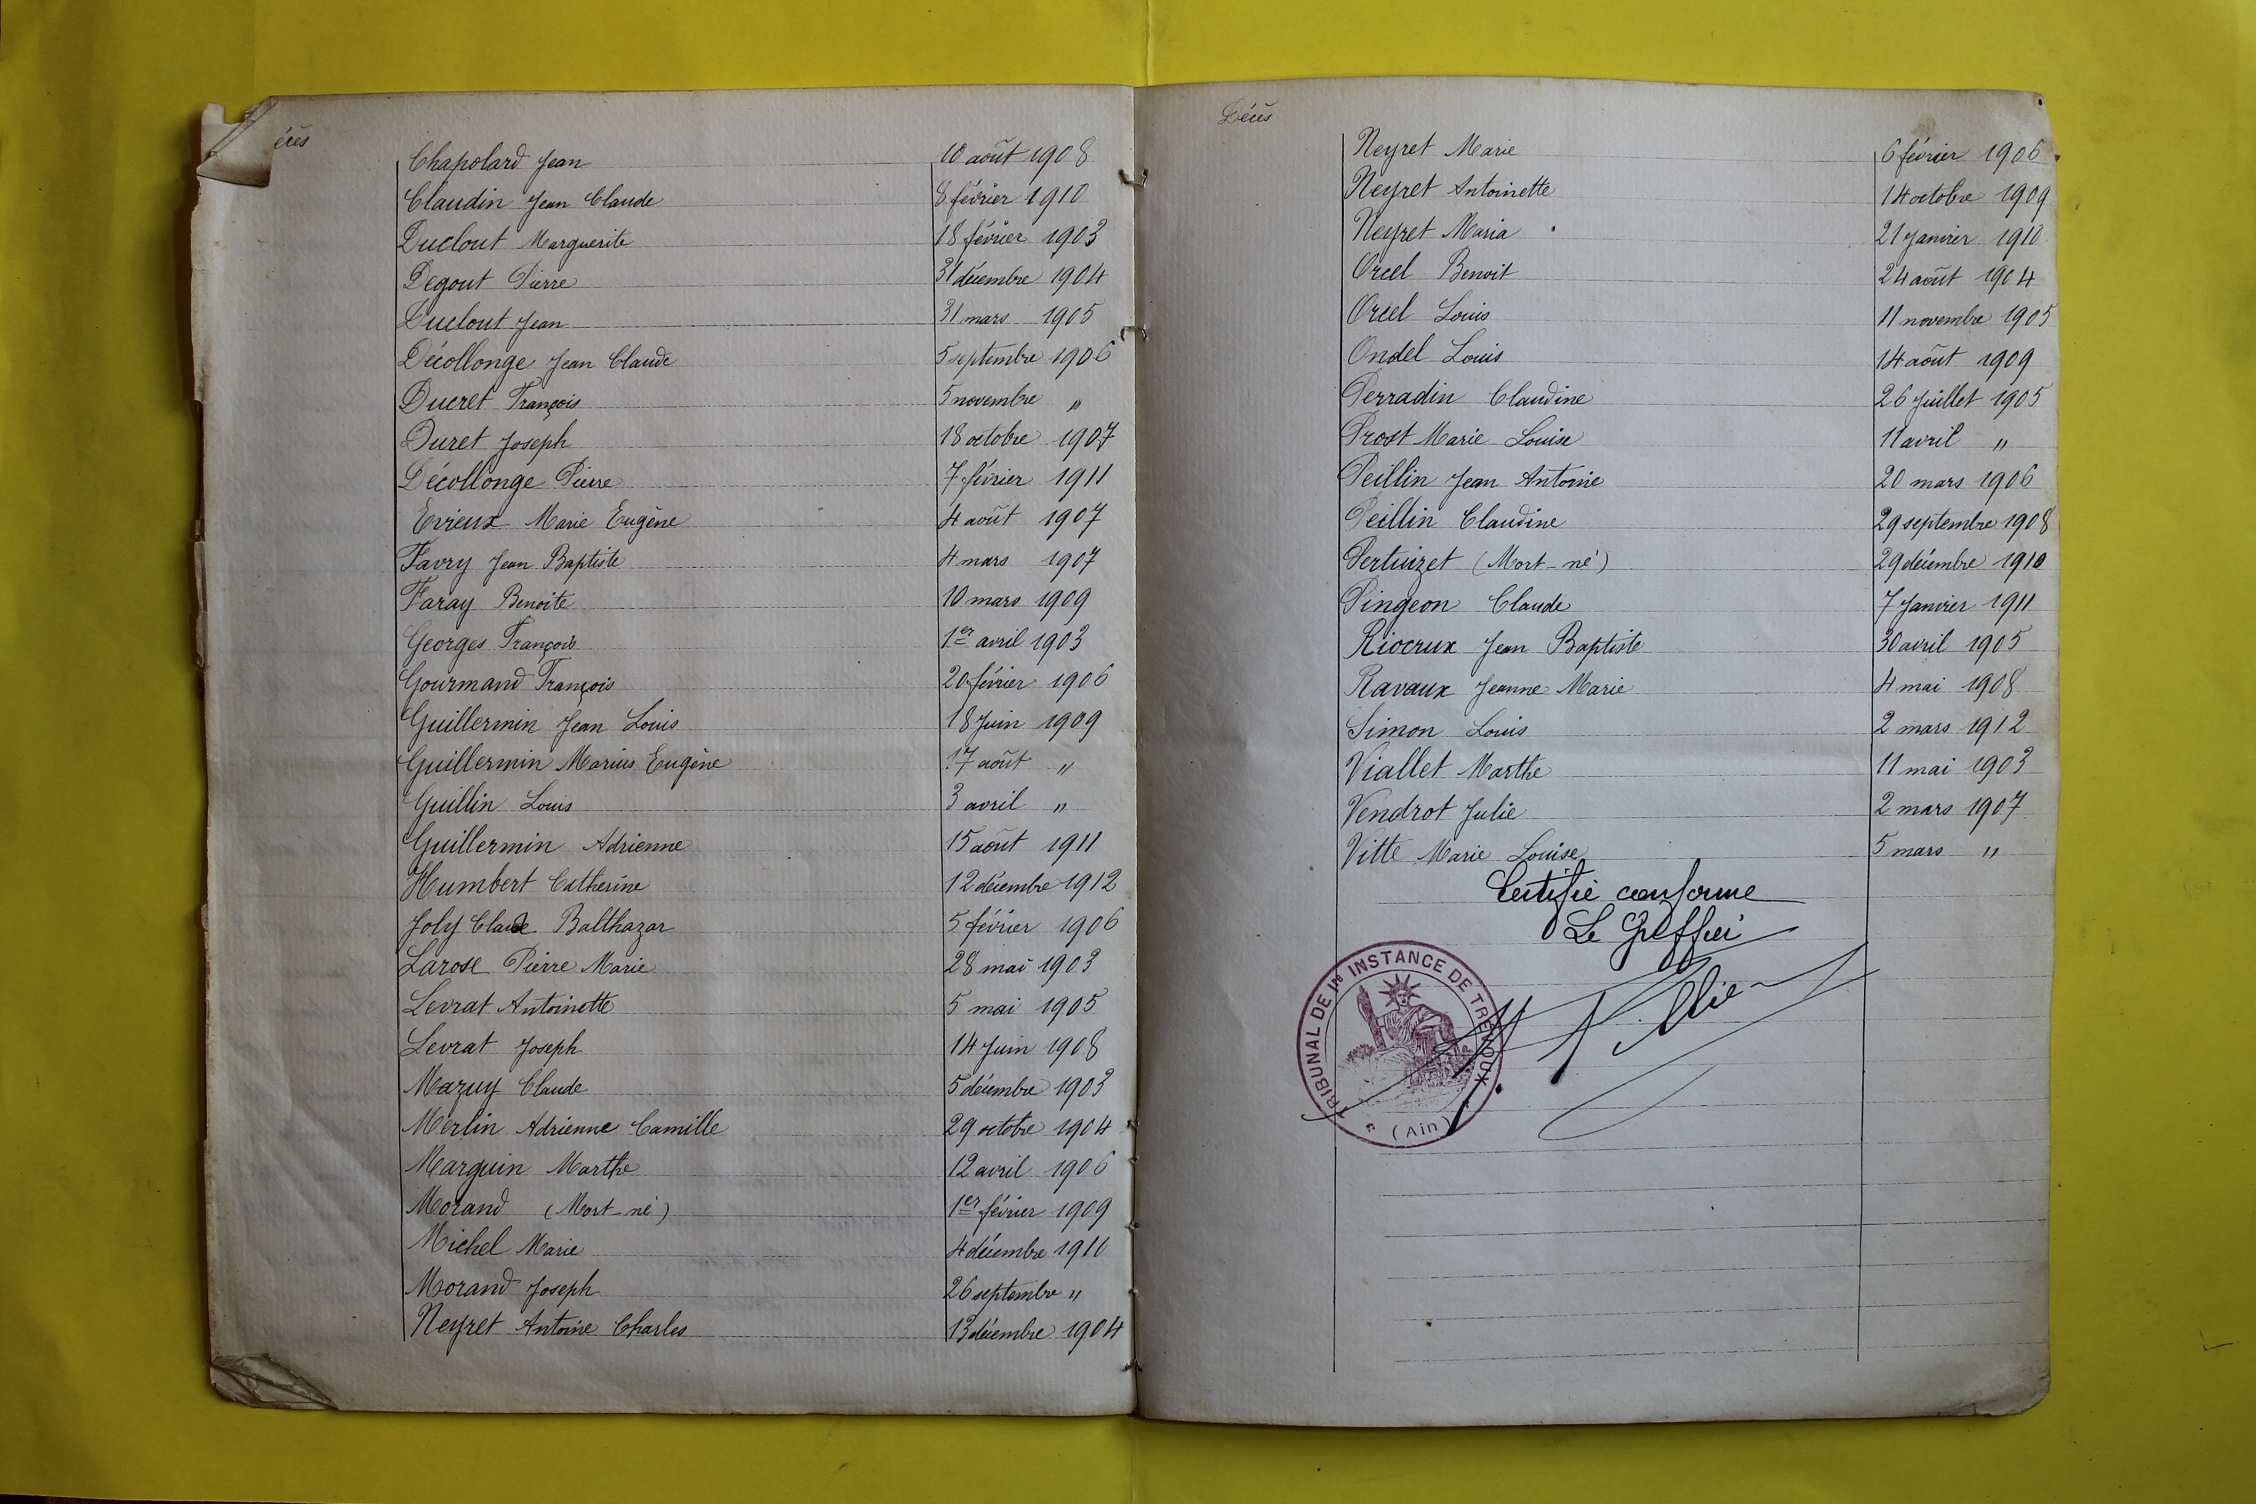 écès
Chapolard Jean 10 août 1908
Claudin Jean Claude 8 février 1910
Duclout Marguerite 18 février 1903
Degout Pierre 31 décembre 1904
Duclout Jean 31 mars 1905
Décollonge Jean Claude 5 septembre 1906
Ducret François 5 novembre "
Duret Joseph 18 octobre 1907
Décollonge Pierre 7 février 1911
Evieux Marie Eugène 4 août 1907
Favry Jean Baptiste 4 mars 1907
Faray Benoite 10 mars 1909
Georges François 1er avril 1903
Gourmand François 20 février 1906
Guillermin Jean Louis 18 Juin 1909
Guillermin Marius Eugène 17 août "
Guillin Louis 3 avril "
Guillermin Adrienne 15 août 1911
Humbert Catherine 12 décembre 1912
Joly Claude Balthazar 5 février 1906
Larose Pierre Marie 28 mai 1903
Levrat Antoinette 5 mai 1905
Levrat Joseph 14 Juin 1908
Mazuy Claude 5 décembre 1903
Merlin Adrienne Camille 29 octobre 1904
Marguin Marthe 12 avril 1906
Morand (Mort-né) 1er février 1909
Michel Marie 4 décembre 1910
Morand Joseph 26 septembre "
Neyret Antoine Charles 13 décembre 1904
Décès
Neyret Marie 6 février 1906
Neyret Antoinette 14 octobre 1909
Neyret Maria 21 Janvier 1910
Orcel Benoit 24 août 1904
Orcel Louis 11 novembre 1905
Ondel Louis 14 août 1909
Perradin Claudine 26 Juillet 1905
Prost Marie Louise 11 avril "
Peillin Jean Antoine 20 mars 1906
Peillin Claudine 29 septembre 1908
Pertuizet (Mort-né) 29 décembre 1910
Pingeon Claude 7 Janvier 1911
Riocrux Jean Baptiste 30 avril 1905
Ravaux Jeanne Marie 4 mai 1908
Simon Louis 2 mars 1912
Viallet Marthe 11 mai 1903
Vendrot Julie 2 mars 1907
Vitte Marie Louise 5 mars "
Certifié conforme
Le Greffier
TRIBUNAL DE 1re INSTANCE DE TREVOUX
(Ain)